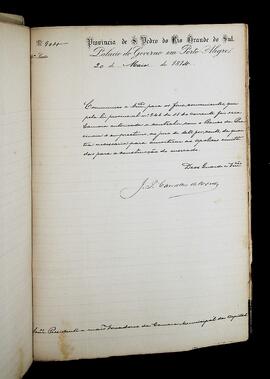 Provincia de S. Pedro do Rio Grande do Sul.
Palacio do Governo em Porto Alegre,
20 de Maio de 1874.
Communico a para os fins convenientes, que
pela lei provincial nº de 11 do corrente foi essa
Camara autorisada a contrahir com o Banco da Pro-
vincia o emprestimo ao juro de da quan-
tia necessaria para as apolices emitti-
das para a construcção do mercado.
Deus Guarde a
Presidente e mais Vereadores da Camara Municipal da Capital